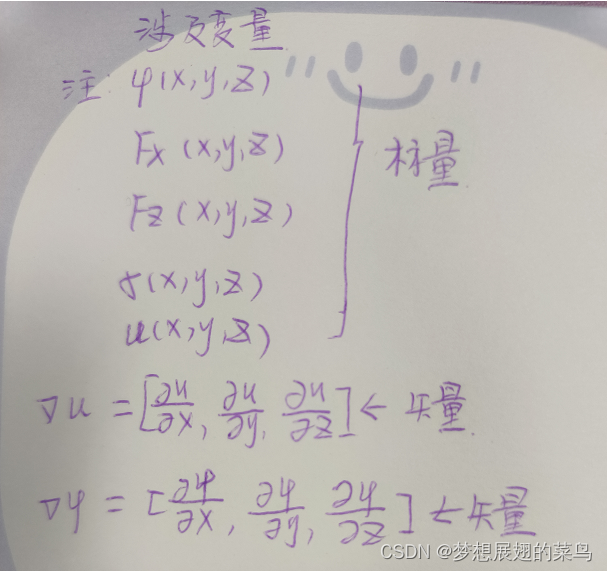 涉及变量
注: φ(x,y,z)
Fx (x,y,z)
Fz (x,y,z)
σ(x,y,z)
u(x,y,z)
标量
∇u = [∂u/∂x, ∂u/∂y, ∂u/∂z] ← 矢量
∇φ = [∂φ/∂x, ∂φ/∂y, ∂φ/∂z] ← 矢量
CSDN @梦想展翅的菜鸟